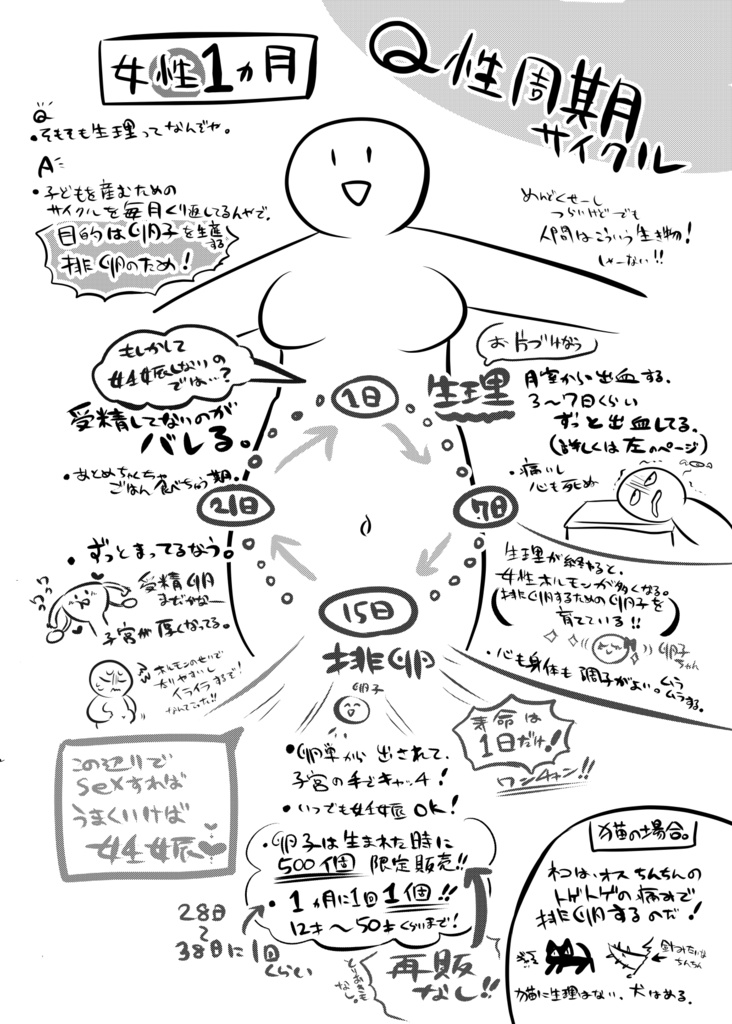 女性1ヵ月
Q性周期
サイクル
Q
・そもそも生理ってなんでや。
A
・子どもを産むための
サイクルを毎月くり返してるんやで。
目的は卵子を生産する
排卵のため!
めんどくせーし
つらいけどでも
人間はこういう生き物!
しゃーない!!
もしかして
妊娠しないの
では…?
受精してないのが
バレる。
・あとめちゃくちゃ
ごはん食べちゃう期。
1日
お片づけなう
生理
月室から出血する。
3〜7日くらい
ずっと出血してる。
(詳しくは左のページ)
・痛いし
心も死ぬ
21日
7日
・ずっとまってるなう。
受精卵
まだかなー
子宮が厚くなってる。
ホルモンのせいで
太りやすいし
イライラするで!
なんてこった!!
15日
排卵
卵子
生理が終わると、
女性ホルモンが多くなる。
排卵するための卵子を
育てている!!
卵子
ちゃん
・心も身体も調子がよい。ムラ
ムラする。
寿命は
1日だけ!
ワンチャン!!
この辺りで
sexすれば
うまくいけば
妊娠
・卵巣から出されて、
子宮の手でキャッチ!
・いつでも妊娠OK!
・卵子は生まれた時に
500個限定販売!!
・1ヵ月に1回1個!!
12才〜50才くらいまで!
28日
〜
38日に1回
くらい
とりおきも
なし。
再販
なし!!
猫の場合。
ネコは、オスちんちんの
トゲトゲの痛みで
排卵するのだ!
針みたいな
ちんちん
猫に生理はない、犬はある。